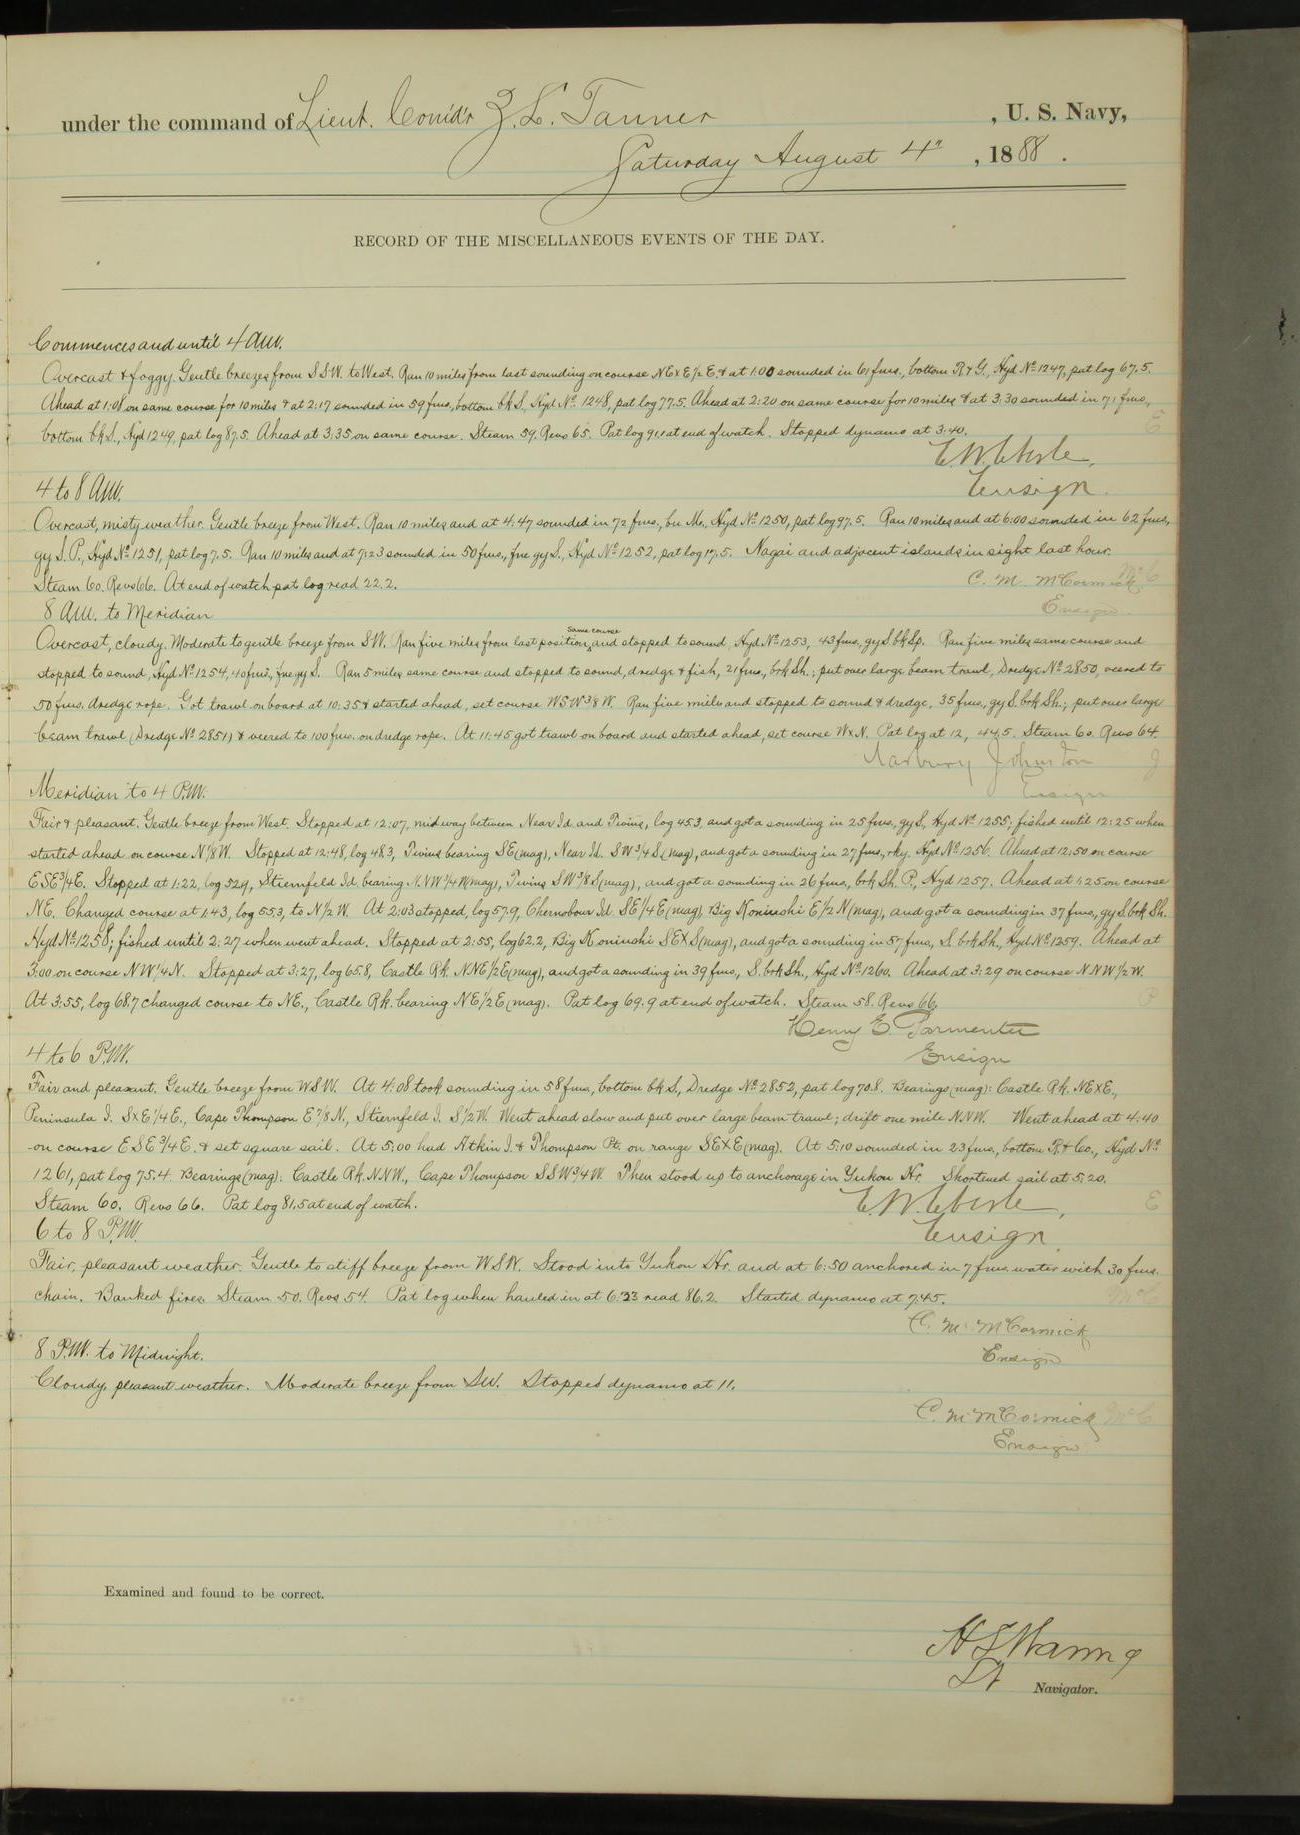 under the command of Lieut. Com'd'r Z. L. Tanner, U. S. Navy,
Saturday August 4", 1888.
RECORD OF THE MISCELLANEOUS EVENTS OF THE DAY.
Commences and until 4 A.M.
Overcast & foggy. Gentle breezes from S.S.W. to West. Ran 10 miles from last sounding on course NExE½E, & at 1:00 sounded in 61 fms., bottom R & G, Hyd No 1247, pat log 67.5.
Ahead at 1:08 on same course for 10 miles & at 2:17 sounded in 59 fms, bottom bk S., Hyd No 1248, pat log 77.5. Ahead at 2:20 on same course for 10 miles & at 3:30 sounded in 71 fms,
bottom bk S., Hyd 1249, pat log 87.5. Ahead at 3:35 on same course. Steam 59. Revs 65. Pat log 91.1 at end of watch. Stopped dynamo at 3:40.
E
E. W. Eberle,
Ensign.
4 to 8 A.M.
Overcast, misty weather. Gentle breeze from West. Ran 10 miles and at 4:47 sounded in 72 fms., bu M., Hyd No 1250, pat log 97.5. Ran 10 miles and at 6:00 sounded in 62 fms,
gy S. P., Hyd No 1251, pat log 7.5. Ran 10 miles and at 7:23 sounded in 50 fms., fne gy S., Hyd No 1252, pat log 17.5. Nagai and adjacent islands in sight last hour.
Steam 60. Revs 66. At end of watch pat log read 22.2.
C. M. McCormick McC
Ensign.
8 A.M. to Meridian
Overcast, cloudy. Moderate to gentle breeze from SW. Ran five miles from last position, same course and stopped to sound, Hyd No 1253, 43 fms, gy S bk Sp. Ran five miles same course and
stopped to sound, Hyd No 1254, 40 fms, fne gy S. Ran 5 miles same course and stopped to sound, dredge & fish, 21 fms, brk Sh.; put over large beam trawl, Dredge No 2850, veered to
50 fms. dredge rope. Got trawl on board at 10:35 & started ahead, set course WSW⅜W. Ran five miles and stopped to sound & dredge, 35 fms, gy S. brk Sh.; put over large
beam trawl (Dredge No 2851) & veered to 100 fms. on dredge rope. At 11:45 got trawl on board and started ahead, set course WxN. Pat log at 12, 44.5. Steam 60. Revs 64.
Marbury Johnston J
Ensign
Meridian to 4 P.M.
Fair & pleasant. Gentle breeze from West. Stopped at 12:07, midway between Near Id. and Twins, log 45.3, and got a sounding in 25 fms, gy S, Hyd No 1255; fished until 12:25 when
started ahead on course N⅛W. Stopped at 12:48, log 48.3, Twins bearing SE (mag), Near Id. SW¾S (mag), and got a sounding in 27 fms, rky. Hyd No 1256. Ahead at 12:50 on course
ESE¾E. Stopped at 1:22, log 52.9, Stiernfeld Id. bearing NNW¼W (mag), Twins SW⅜S (mag), and got a sounding in 26 fms, brk Sh. P., Hyd 1257. Ahead at 1:25 on course
NE. Changed course at 1:43, log 55.3, to N½W. At 2:03 stopped, log 57.9, Chernobour Id. SE¼E (mag), Big Koniushi E½N (mag), and got a sounding in 37 fms, gy S. brk Sh.
Hyd No 1258; fished until 2:27 when went ahead. Stopped at 2:55, log 62.2, Big Koniushi SExS (mag), and got a sounding in 57 fms, S. brk Sh., Hyd No 1259. Ahead at
3:00 on course NW¼N. Stopped at 3:27, log 65.8, Castle Rk. NNE½E (mag), and got a sounding in 39 fms, S. brk Sh., Hyd No 1260. Ahead at 3:29 on course NNW½W.
At 3:55, log 68.7 changed course to NE., Castle Rk. bearing NE½E (mag). Pat log 69.9 at end of watch. Steam 58. Revs 66.
P
Henry E. Parmenter
Ensign
4 to 6 P.M.
Fair and pleasant. Gentle breeze from WSW. At 4:08 took sounding in 58 fms, bottom bk S, Dredge No 2852, pat log 70.8. Bearings (mag): Castle Rk. NExE.,
Peninsula I. SxE¼E., Cape Thompson E⅞N., Stiernfeld I. S½W. Went ahead slow and put over large beam-trawl; drift one mile NNW. Went ahead at 4:40
on course ESE¾E. & set square sail. At 5:00 had Atkin I. & Thompson Pt. on range SExE (mag). At 5:10 sounded in 23 fms, bottom R. & Co., Hyd No
1261, pat log 75.4. Bearings (mag): Castle Rk. NNW., Cape Thompson SSW¾W. Then stood up to anchorage in Yukon Hr. Shortened sail at 5:20.
Steam 60. Revs 66. Pat log 81.5 at end of watch.
E. W. Eberle, E
Ensign.
6 to 8 P.M.
Fair, pleasant weather. Gentle to stiff breeze from WSW. Stood into Yukon Hr. and at 6:50 anchored in 7 fms. water with 30 fms.
chain. Banked fires. Steam 50. Revs 54. Pat log when hauled in at 6:33 read 86.2. Started dynamo at 7:45.
McC
C. M. McCormick
Ensign
8 P.M. to Midnight.
Cloudy, pleasant weather. Moderate breeze from SW. Stopped dynamo at 11.
C. M. McCormick McC
Ensign
Examined and found to be correct.
Lt Navigator.